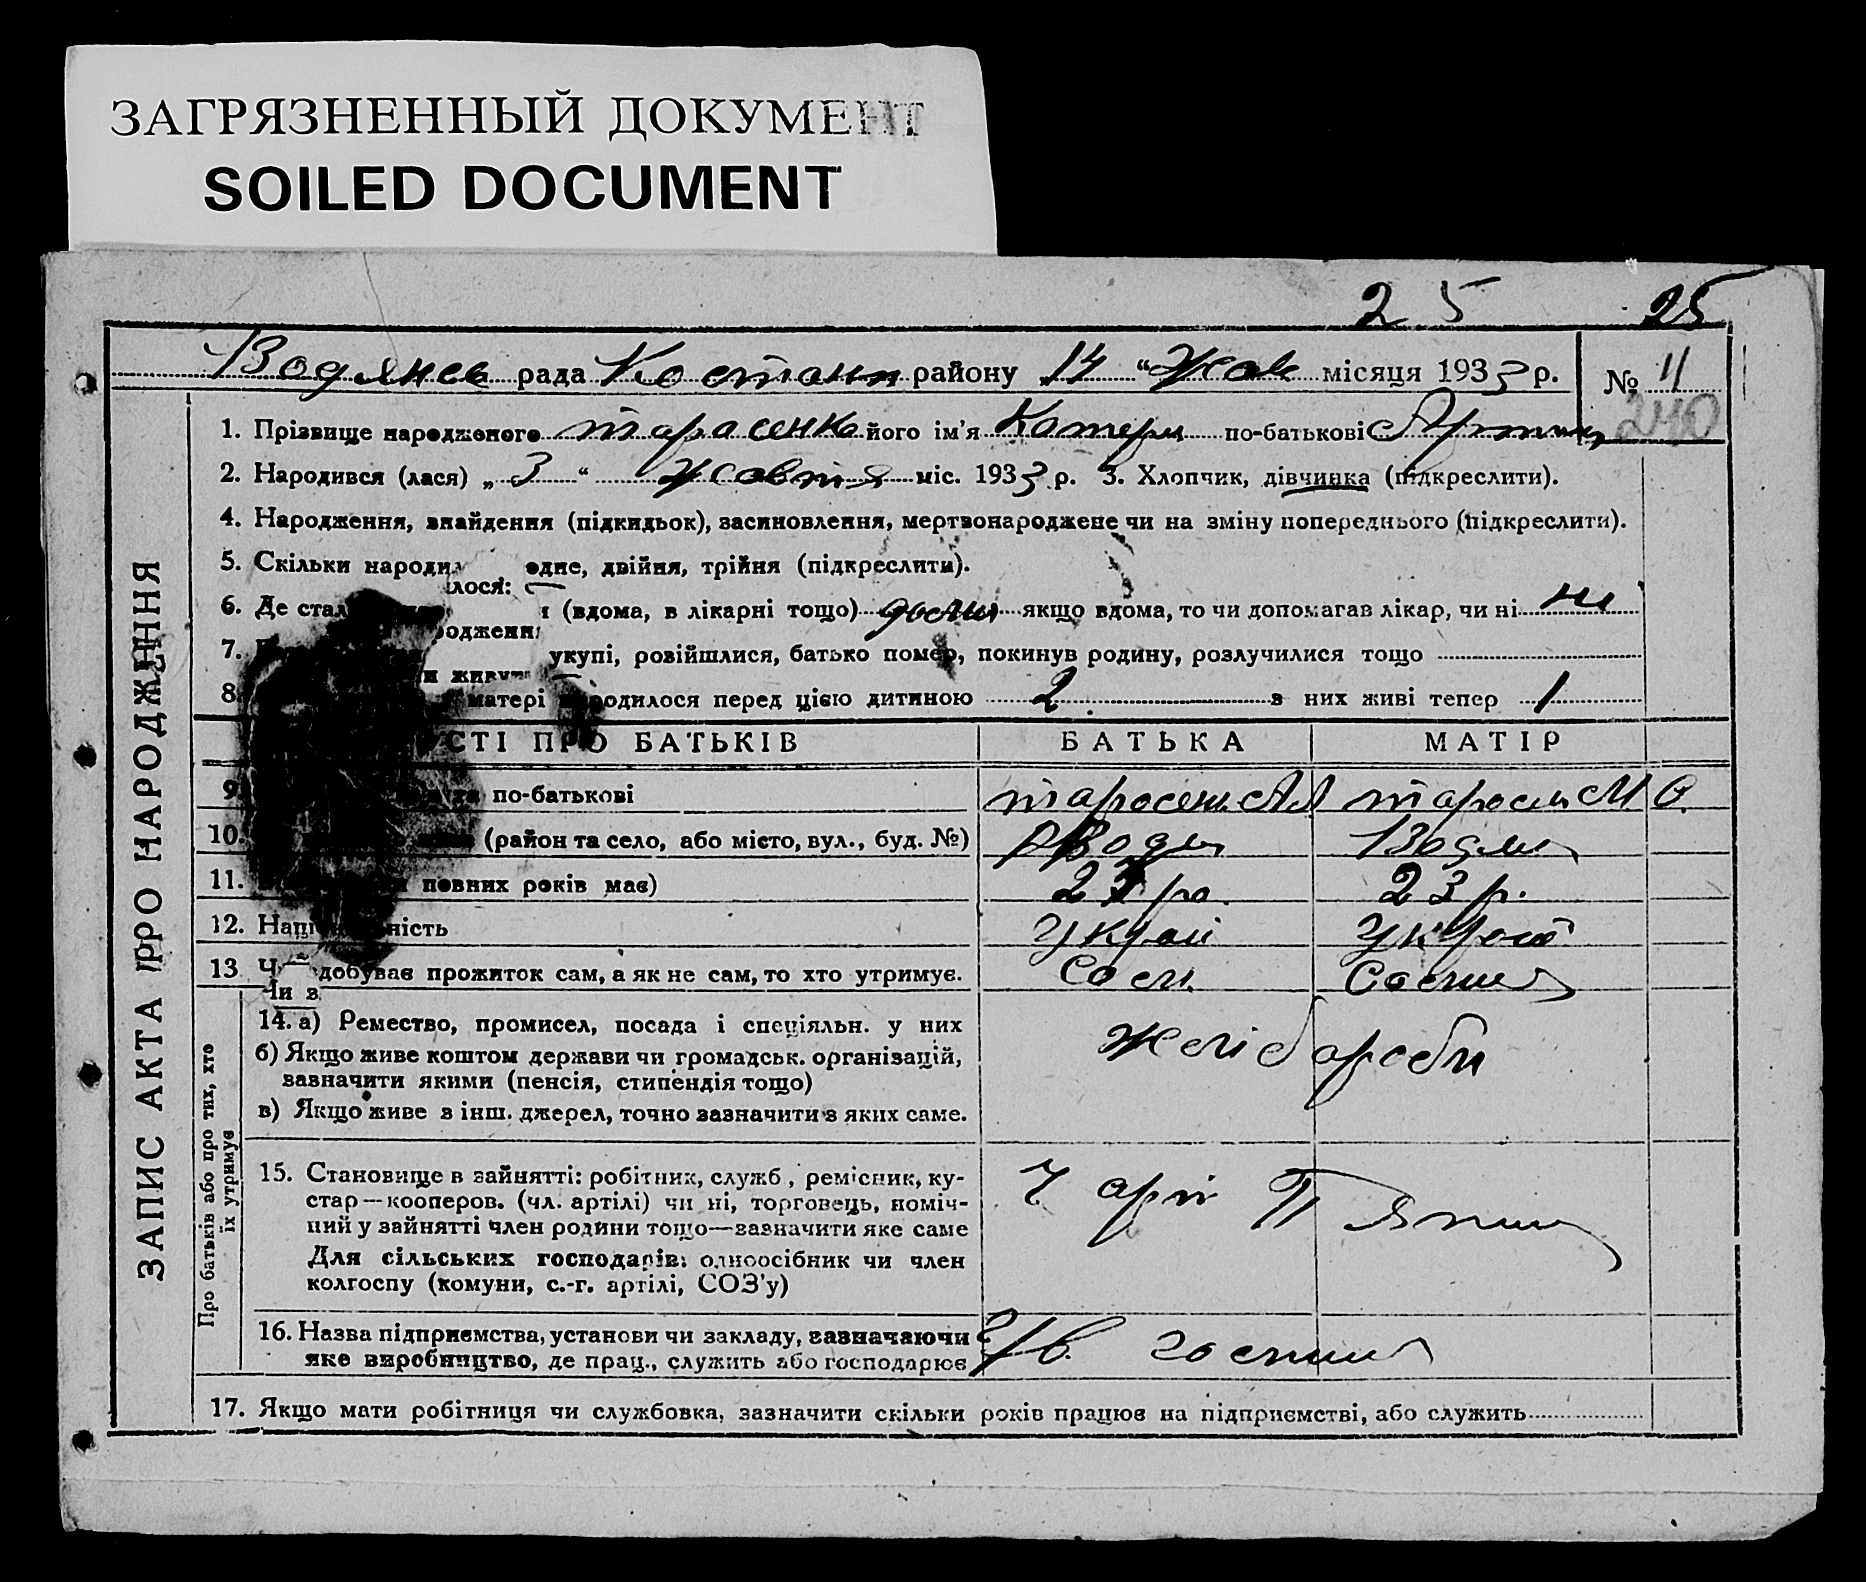 ЗАГРЯЗНЕННЫЙ ДОКУМЕНТ
SOILED DOCUMENT
25 25
Водянсь рада Костянн району „14“ Жов місяця 1933 р. № 11
240
1. Прізвище народженого Тарасенко його ім'я Катери по-батькові
2. Народився (лася) „3“ Жовтня міс. 1933 р. 3. Хлопчик, дівчинка (підкреслити).
4. Народження, знайдення (підкидьок), засиновлення, мертвонароджене чи на зміну попереднього (підкреслити).
5. Скільки народилося: одне, двійня, трійня (підкреслити).
6. Де (вдома, в лікарні тощо) дома якщо вдома, то чи допомагав лікар, чи ні ні
7. укупі, розійшлися, батько помер, покинув родину, розлучилися тощо
8. матері народилося перед цією дитиною 2 з них живі тепер 1
ПРО БАТЬКІВ БАТЬКА МАТІР
9. по-батькові Тарасенк А Я Тарасен М О.
10. (район та село, або місто, вул., буд. №) Водян Водян
11. повних років має) 23 ро. 23 р.
12. Національність Украї Украї
13. Чи здобуває прожиток сам, а як не сам, то хто утримує. Сам.
ЗАПИС АКТА ПРО НАРОДЖЕННЯ
Про батьків або про тих, хто їх утримує
14. а) Ремество, промисел, посада і спеціяльн. у них Хліборобн
б) Якщо живе коштом держави чи громадськ. організацій,
зазначити якими (пенсія, стипендія тощо)
в) Якщо живе з інш. джерел, точно зазначити з яких саме.
15. Становище в зайнятті: робітник, служб., ремісник, ку-
стар — кооперов. (чл. артілі) чи ні, торговець, поміч-
ний у зайнятті член родини тощо — зазначити яке саме
Для сільських господарів: одноосібник чи член
колгоспу (комуни, с.-г. артілі, СОЗ'у)
16. Назва підприємства, установи чи закладу, зазначаючи
яке виробництво, де прац., служить або господарює
17. Якщо мати робітниця чи службовка, зазначити скільки років працює на підприємстві, або служить